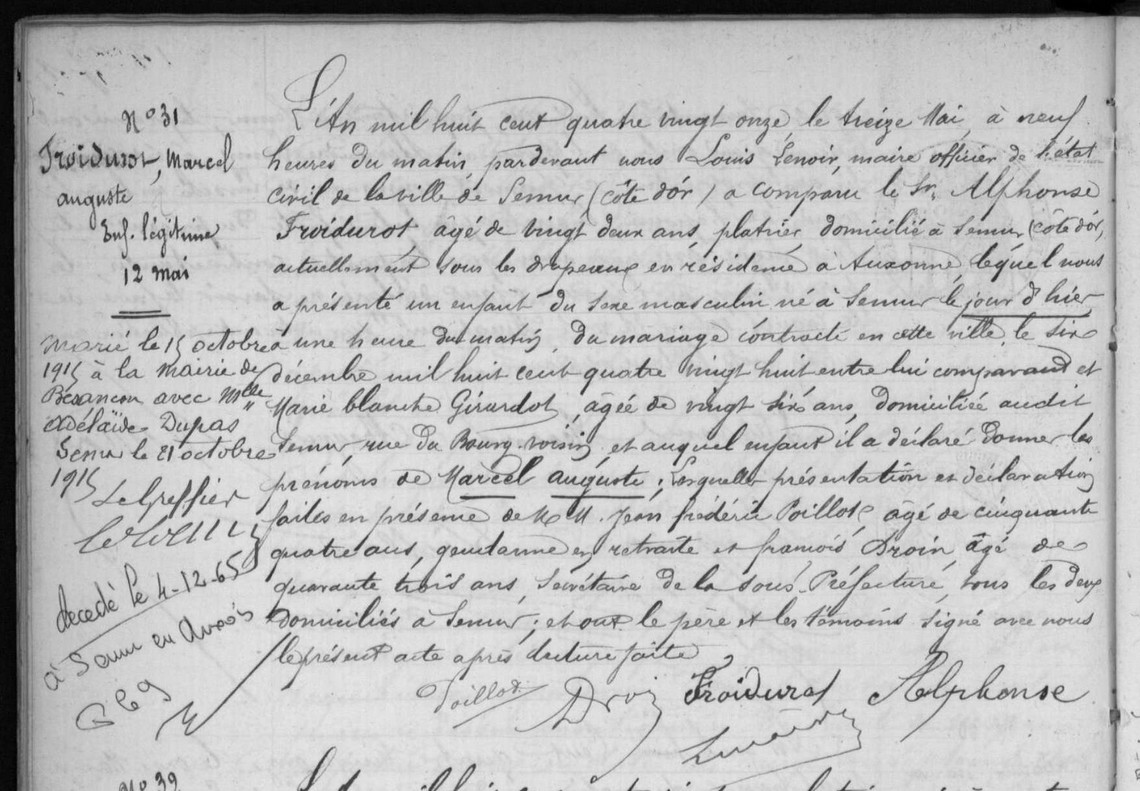 N° 31
Froidurot, Marcel
auguste
Enf. légitime
12 Mai
Marié le 15 octobre
1915 à la Mairie de
Besançon avec Mlle
Adélaïde Dupas
Semur le 21 octobre
1915
Le Greffier
décédé le 4-12-65
à Semur en Auxois
L'An mil huit cent quatre vingt onze le treize Mai, à neuf
heures du matin, pardevant nous Louis Lenoir, maire officier de l'état
civil de la ville de Semur (côte d'or) a comparu le Sr. Alphonse
Froidurot âgé de vingt deux ans, platrier domicilié à Semur (côte d'or,
actuellement sous les drapeaux en résidence a Auxonne lequel nous
a présenté un enfant du sexe masculin né à Semur le jour d'hier
a une heure du matin, du mariage contracté en cette ville, le six
décembre mil huit cent quatre vingt huit entre lui comparant et
Marie blanche Girardot, âgée de vingt six ans, domiciliée audit
Semur rue du Bourg-voisin, et auquel enfant il a déclaré donner les
prénoms de Marcel auguste; Lesquelles présentation et déclaration
faites en présence de M M. Jean frédéric Poillot, âgé de cinquante
quatre ans, gendarme en retraite et françois Droin âgé de
quarante trois ans, Secrétaire de la sous-Préfecture, tous les deux
domiciliés à Semur; et ont le père et les témoins signé avec nous
le présent acte après lecture faite
Poillot Droin Froidurot Alphonse